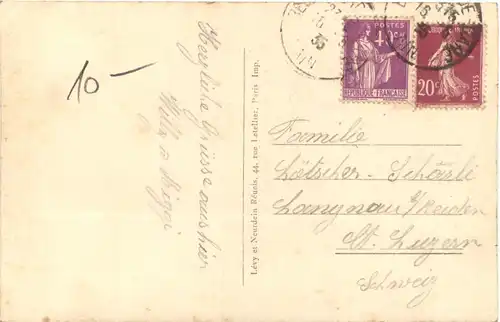 10-
Herzliche Grüsse aus hier
Lévy et Neurdein Réunis, 44, rue Letellier, Paris Imp.
POSTES
40c
REPUBLIQUE FRANÇAISE
20c
POSTES
Familie
Lötscher-Schärli
Langnau b/Reiden
Kt. Luzern
Schweiz